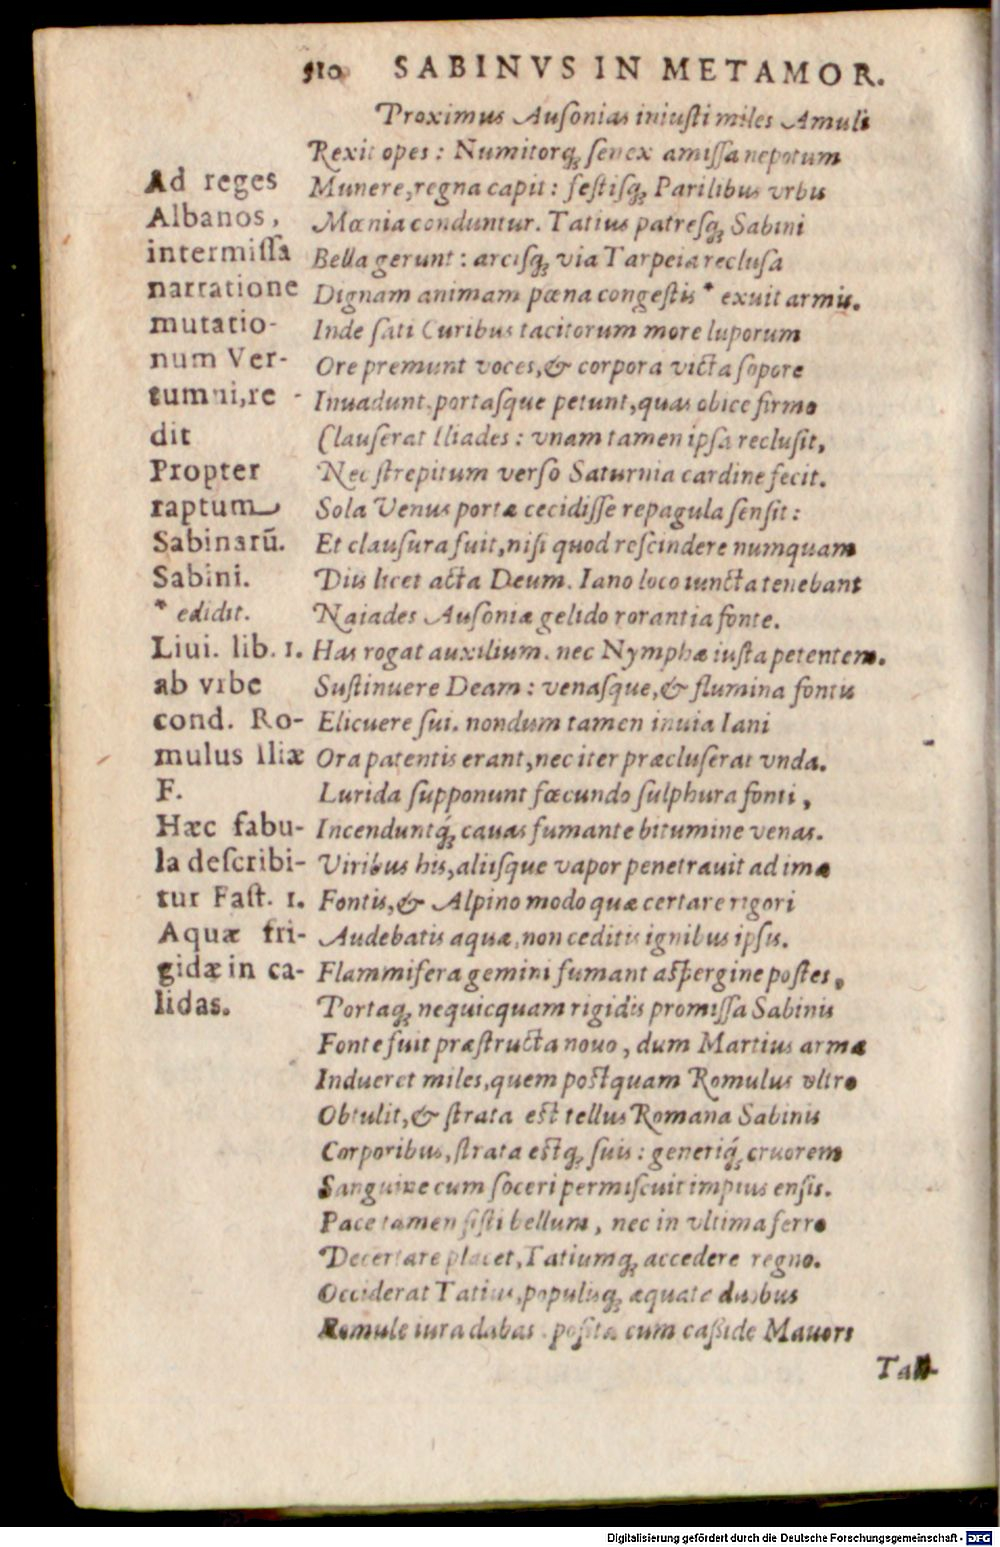 510 SABINVS IN METAMOR.
Proximus Ausonias iniusti miles Amuli
Rexit opes: Numitorq; senex amissa nepotum
Munere, regna capit: festisq; Parilibus vrbis
Mœnia conduntur. Tatius patresq; Sabini
Bella gerunt: arcisq; via Tarpeia reclusa
Dignam animam pœna congestis * exuit armis.
Inde sati Curibus tacitorum more luporum
Ore premunt voces, & corpora victa sopore
Inuadunt, portasque petunt, quas obice firmo
Clauserat Iliades: vnam tamen ipsa reclusit,
Nec strepitum verso Saturnia cardine fecit.
Sola Venus portæ cecidisse repagula sensit:
Et clausura fuit, nisi quod rescindere numquam
Diis licet acta Deum. Iano loco iuncta tenebant
Naiades Ausoniæ gelido rorantia fonte.
Has rogat auxilium. nec Nymphæ iusta petentem.
Sustinuere Deam: venasque, & flumina fontis
Elicuere sui. nondum tamen inuia Iani
Ora patentis erant, nec iter præcluserat vnda.
Lurida supponunt fœcundo sulphura fonti,
Incenduntq́; cauas fumante bitumine venas.
Viribus his, aliisque vapor penetrauit ad ima
Fontis, & Alpino modo quæ certare rigori
Audebatis aquæ, non ceditis ignibus ipsis.
Flammifera gemini fumant aspergine postes,
Portaq; nequicquam rigidis promissa Sabinis
Fonte fuit præstructa nouo, dum Martius arma
Indueret miles, quem postquam Romulus vltro
Obtulit, & strata est tellus Romana Sabinis
Corporibus, strata estq; suis: generiq́; cruorem
Sanguine cum soceri permiscuit impius ensis.
Pace tamen sisti bellum, nec in vltima ferro
Decertare placet, Tatiumq; accedere regno.
Occiderat Tatius, populisq; æquata duobus
Romule iura dabas. posita cum casside Mauors
Tali-
Ad reges
Albanos,
intermissa
narratione
mutatio-
num Ver-
tumni, re-
dit
Propter
raptum
Sabinarũ.
Sabini.
* edidit.
Liui. lib. 1.
ab vrbe
cond. Ro-
mulus Iliæ
F.
Hæc fabu-
la describi-
tur Fast. 1.
Aquæ fri-
gidæ in ca-
lidas.
Digitalisierung gefördert durch die Deutsche Forschungsgemeinschaft - DFG